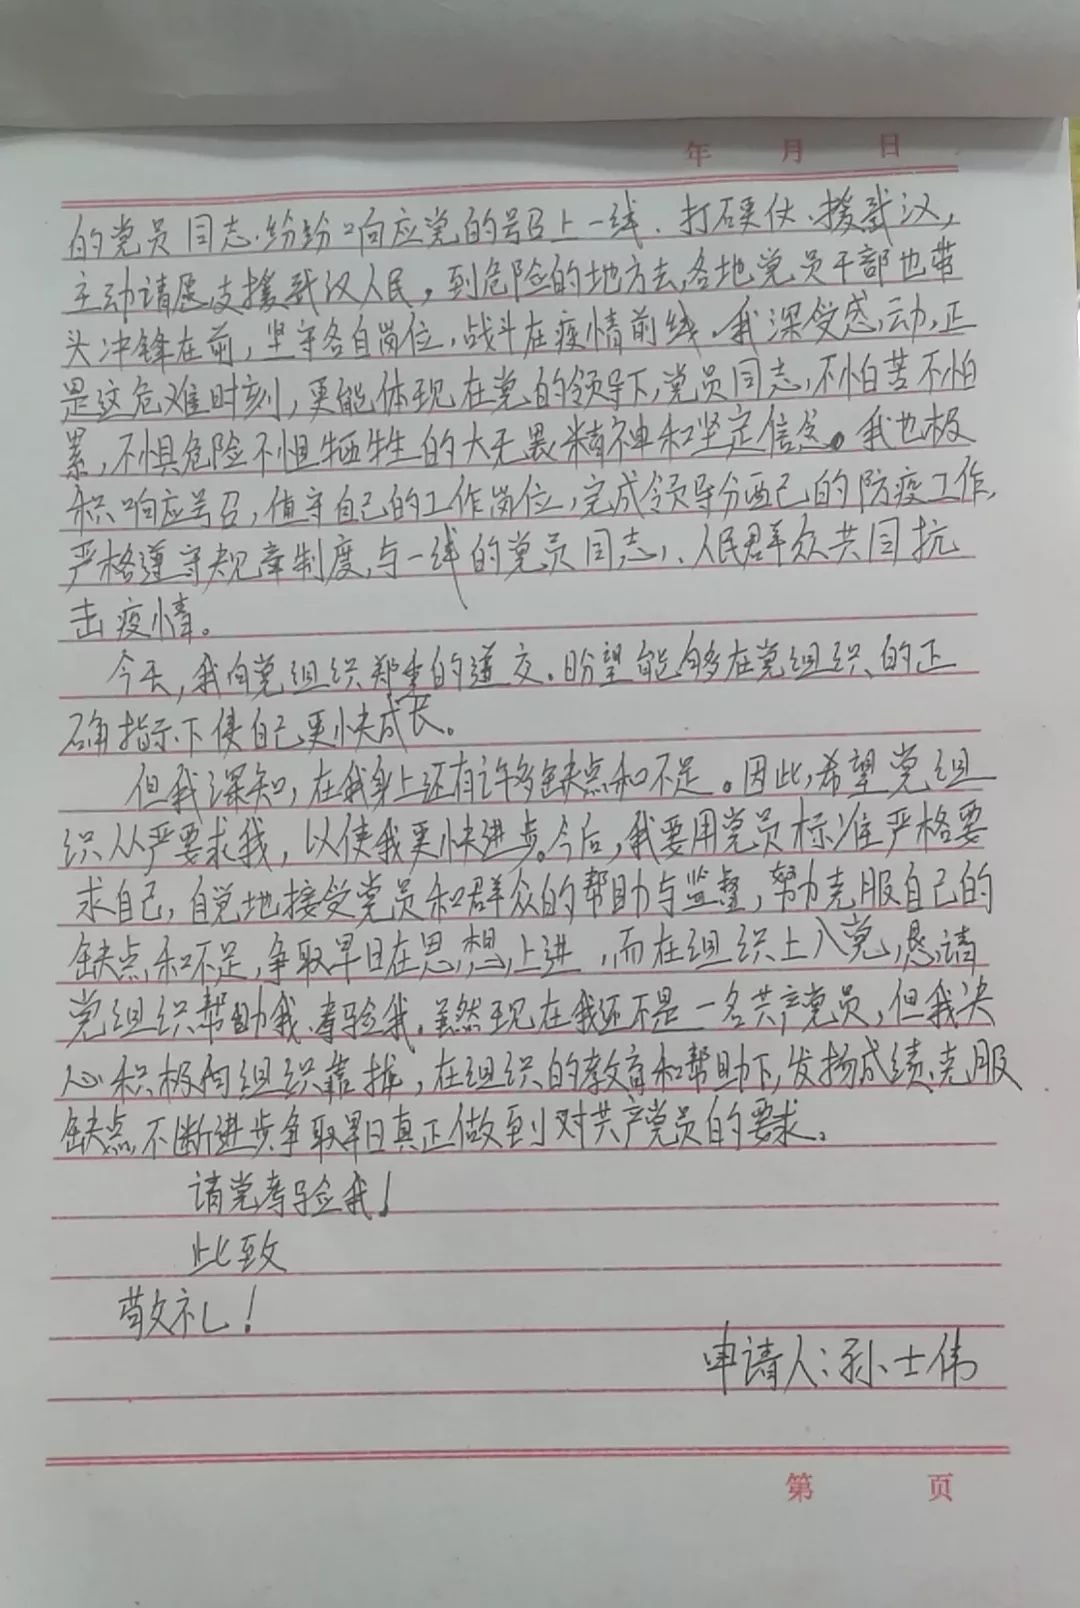 年 月 日
的党员同志.纷纷响应党的号召上一线、打硬仗、援武汉,
主动请愿支援武汉人民,到危险的地方去,各地党员干部也带
头冲锋在前,坚守各自岗位,战斗在疫情前线.我深受感动,正
是这危难时刻,更能体现在党的领导下,党员同志,不怕苦不怕
累,不惧危险不惧牺牲的大无畏精神和坚定信念。我也极
积响应号召,值守自己的工作岗位,完成领导分配己的防疫工作,
严格遵守规章制度,与一线的党员同志、人民群众共同抗
击疫情。
今天,我向党组织郑重的递交.盼望能够在党组织的正
确指示下使自己更快成长。
但我深知,在我身上还有许多缺点和不足。因此,希望党组
织从严要求我,以使我更快进步。今后,我要用党员标准严格要
求自己,自觉地接受党员和群众的帮助与监督,努力克服自己的
缺点和不足,争取早日在思想上进,而在组织上入党,恳请
党组织帮助我、考验我。虽然现在我还不是一名共产党员,但我决
心积极向组织靠拢,在组织的教育和帮助下,发扬成绩、克服
缺点,不断进步争取早日真正做到对共产党员的要求。
请党考验我!
此致
敬礼!
申请人:孙士伟
第 页